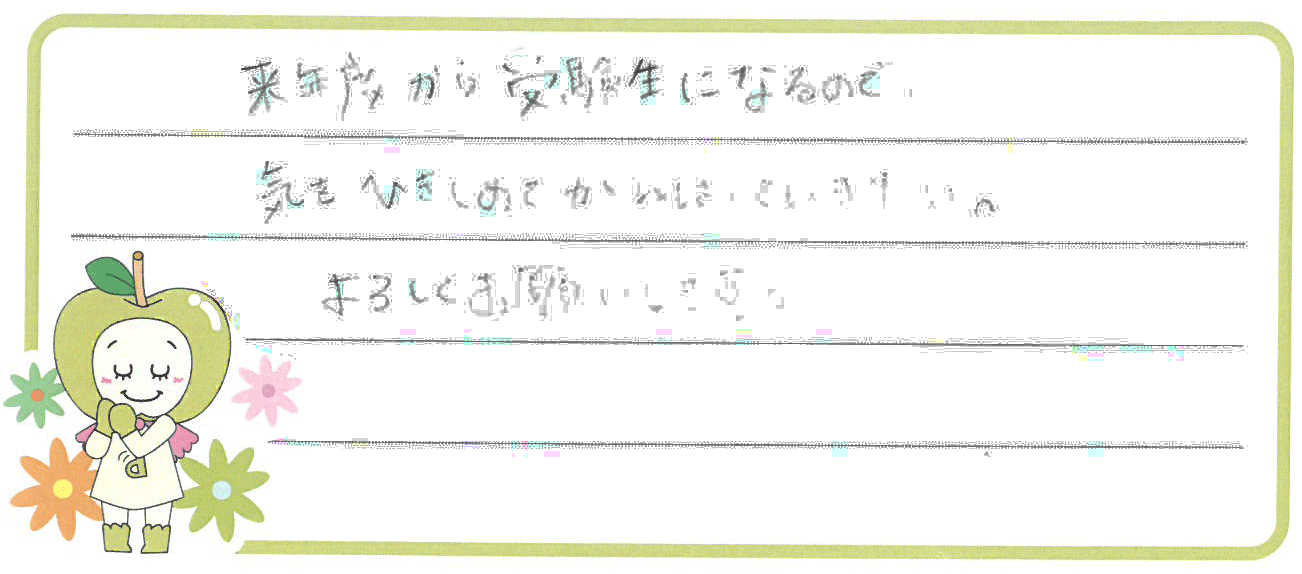 来年度から受験生になるので
気を引きしめてがんばっていきたい。
よろしくお願いします。